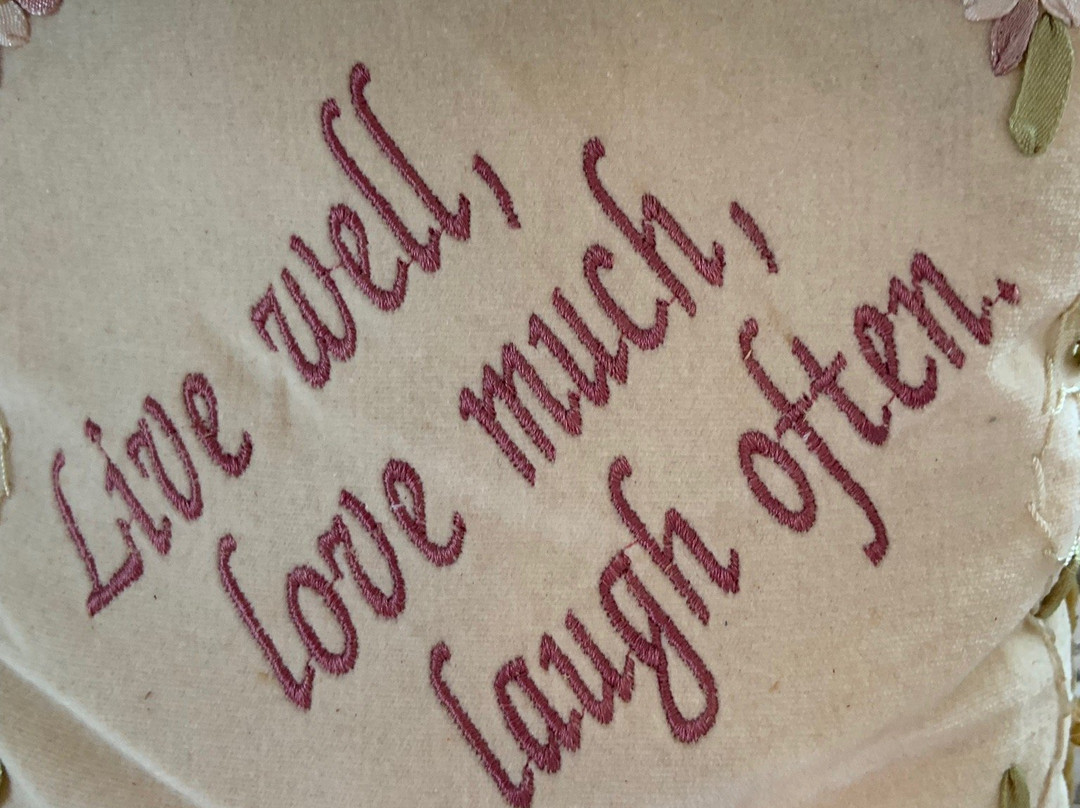 Live well,
love much,
laugh often.